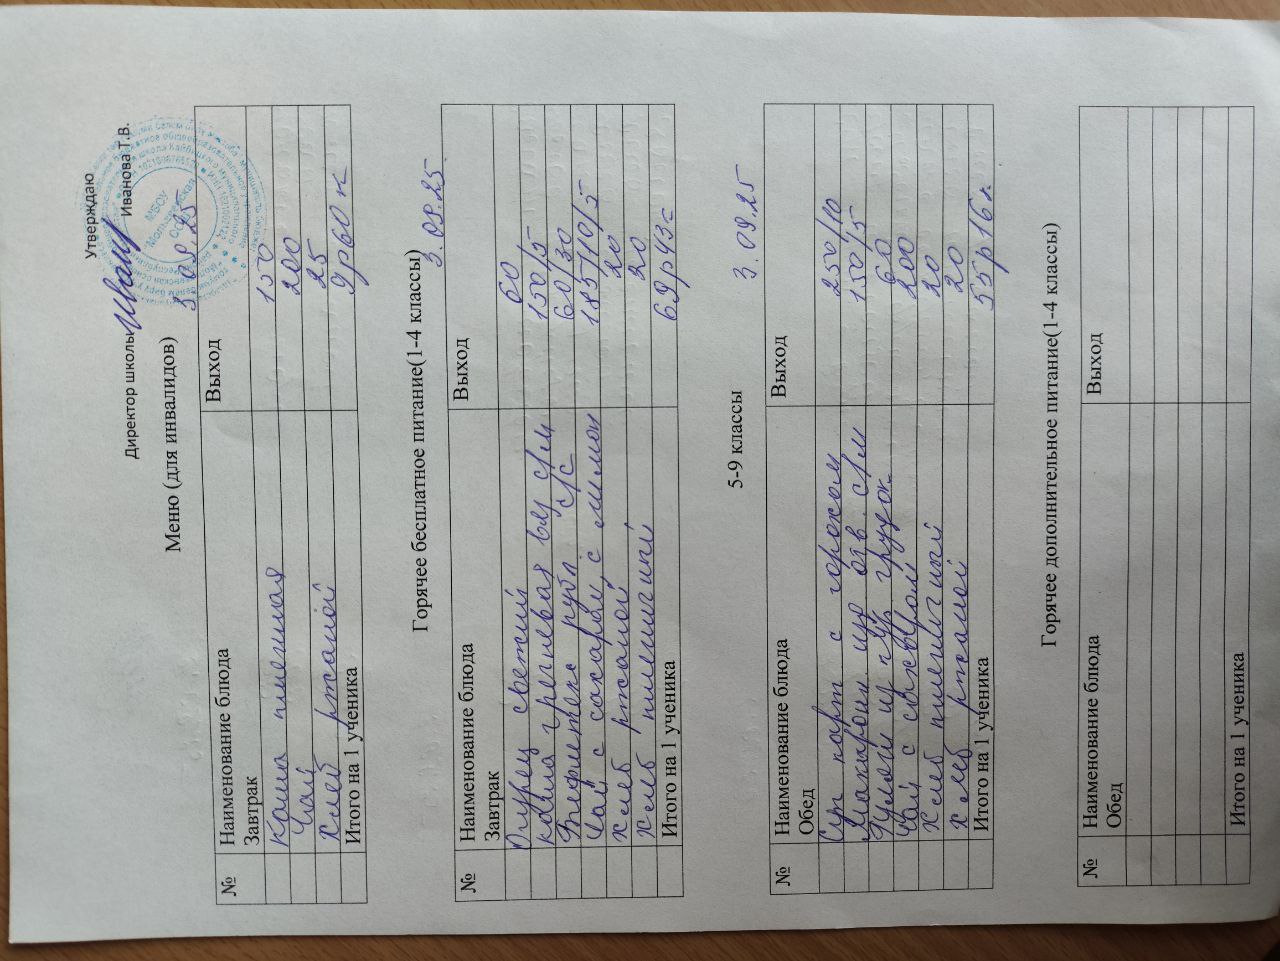 Утверждаю
Директор школы Иванова Т.В.
МБОУ
3.09.25
Меню (для инвалидов)
№ Наименование блюда Выход
Завтрак
Каша пшенная 150
Чай 200
Хлеб ржаной 25
Итого на 1 ученика 9р60к
Горячее бесплатное питание(1-4 классы)
3.09.25
№ Наименование блюда Выход
Завтрак
Огурец свежий 60
каша гречневая вяз с/м 150/5
Бифштекс рубл с/с 60/30
Чай с сахаром с лимон 185/10/5
хлеб ржаной 20
хлеб пшеничный 20
Итого на 1 ученика 69р43к
5-9 классы 3.09.25
№ Наименование блюда Выход
Обед
Суп карт с горохом 250/10
Макароны отв. с/м 150/5
Гуляш из кур грудок 60
Чай с сахаром 200
хлеб пшеничный 20
хлеб ржаной 20
Итого на 1 ученика 55р16к
Горячее дополнительное питание(1-4 классы)
№ Наименование блюда Выход
Обед
Итого на 1 ученика